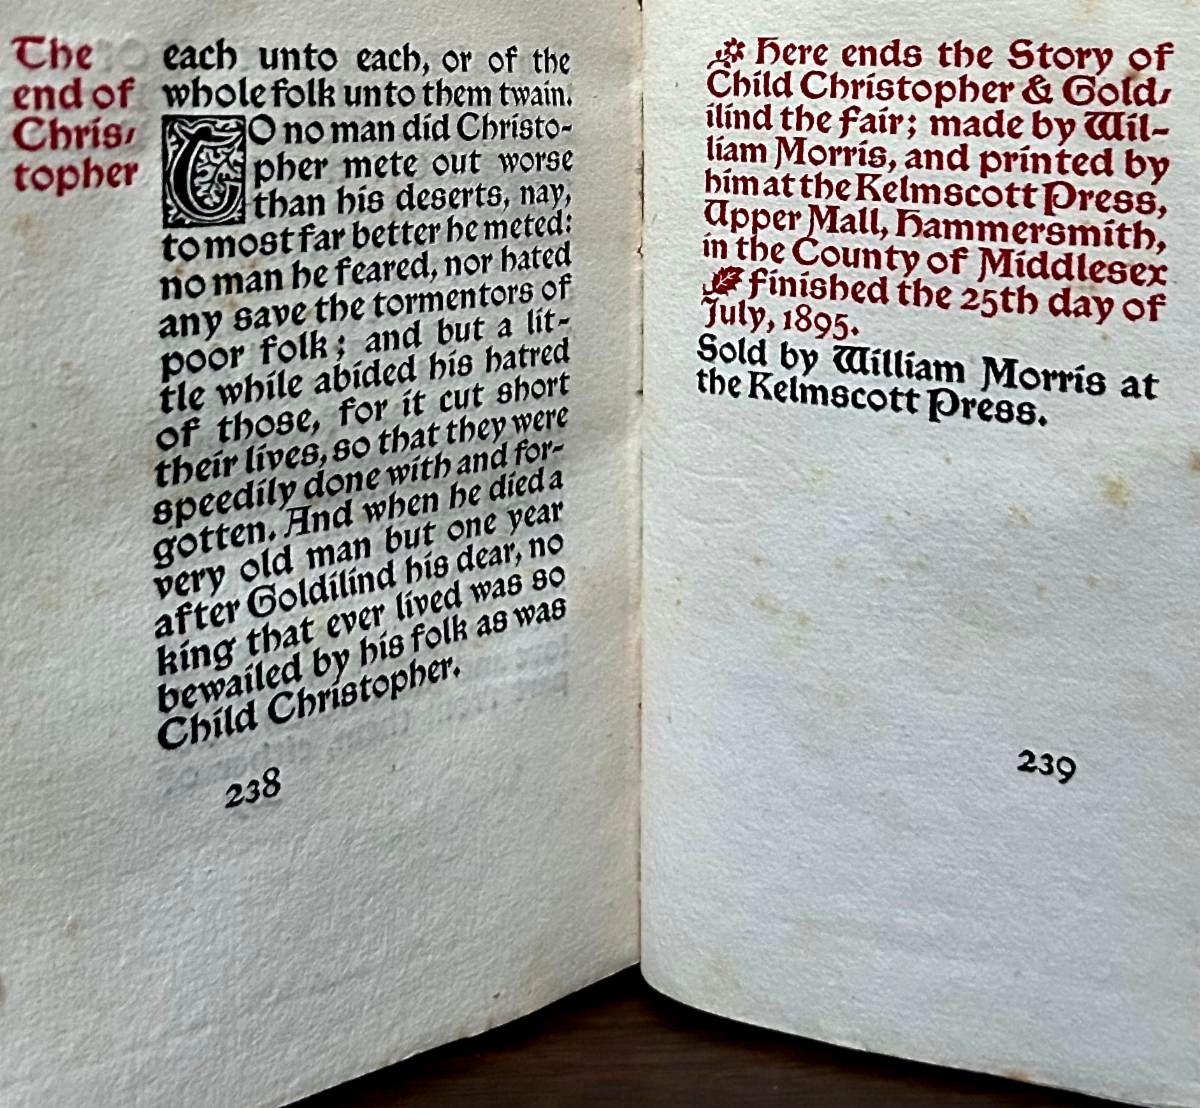 The
end of
Chris/
topher
each unto each, or of the
whole folk unto them twain.
TO no man did Christo-
pher mete out worse
than his deserts, nay,
to most far better he meted:
no man he feared, nor hated
any save the tormentors of
poor folk; and but a lit-
tle while abided his hatred
of those, for it cut short
their lives, so that they were
speedily done with and for-
gotten. And when he died a
very old man but one year
after Goldilind his dear, no
king that ever lived was so
bewailed by his folk as was
Child Christopher.
238
Here ends the Story of
Child Christopher & Gold/
ilind the fair; made by Wil-
liam Morris, and printed by
him at the Kelmscott Press,
Upper Mall, Hammersmith,
in the County of Middlesex
finished the 25th day of
July, 1895.
Sold by William Morris at
the Kelmscott Press.
239